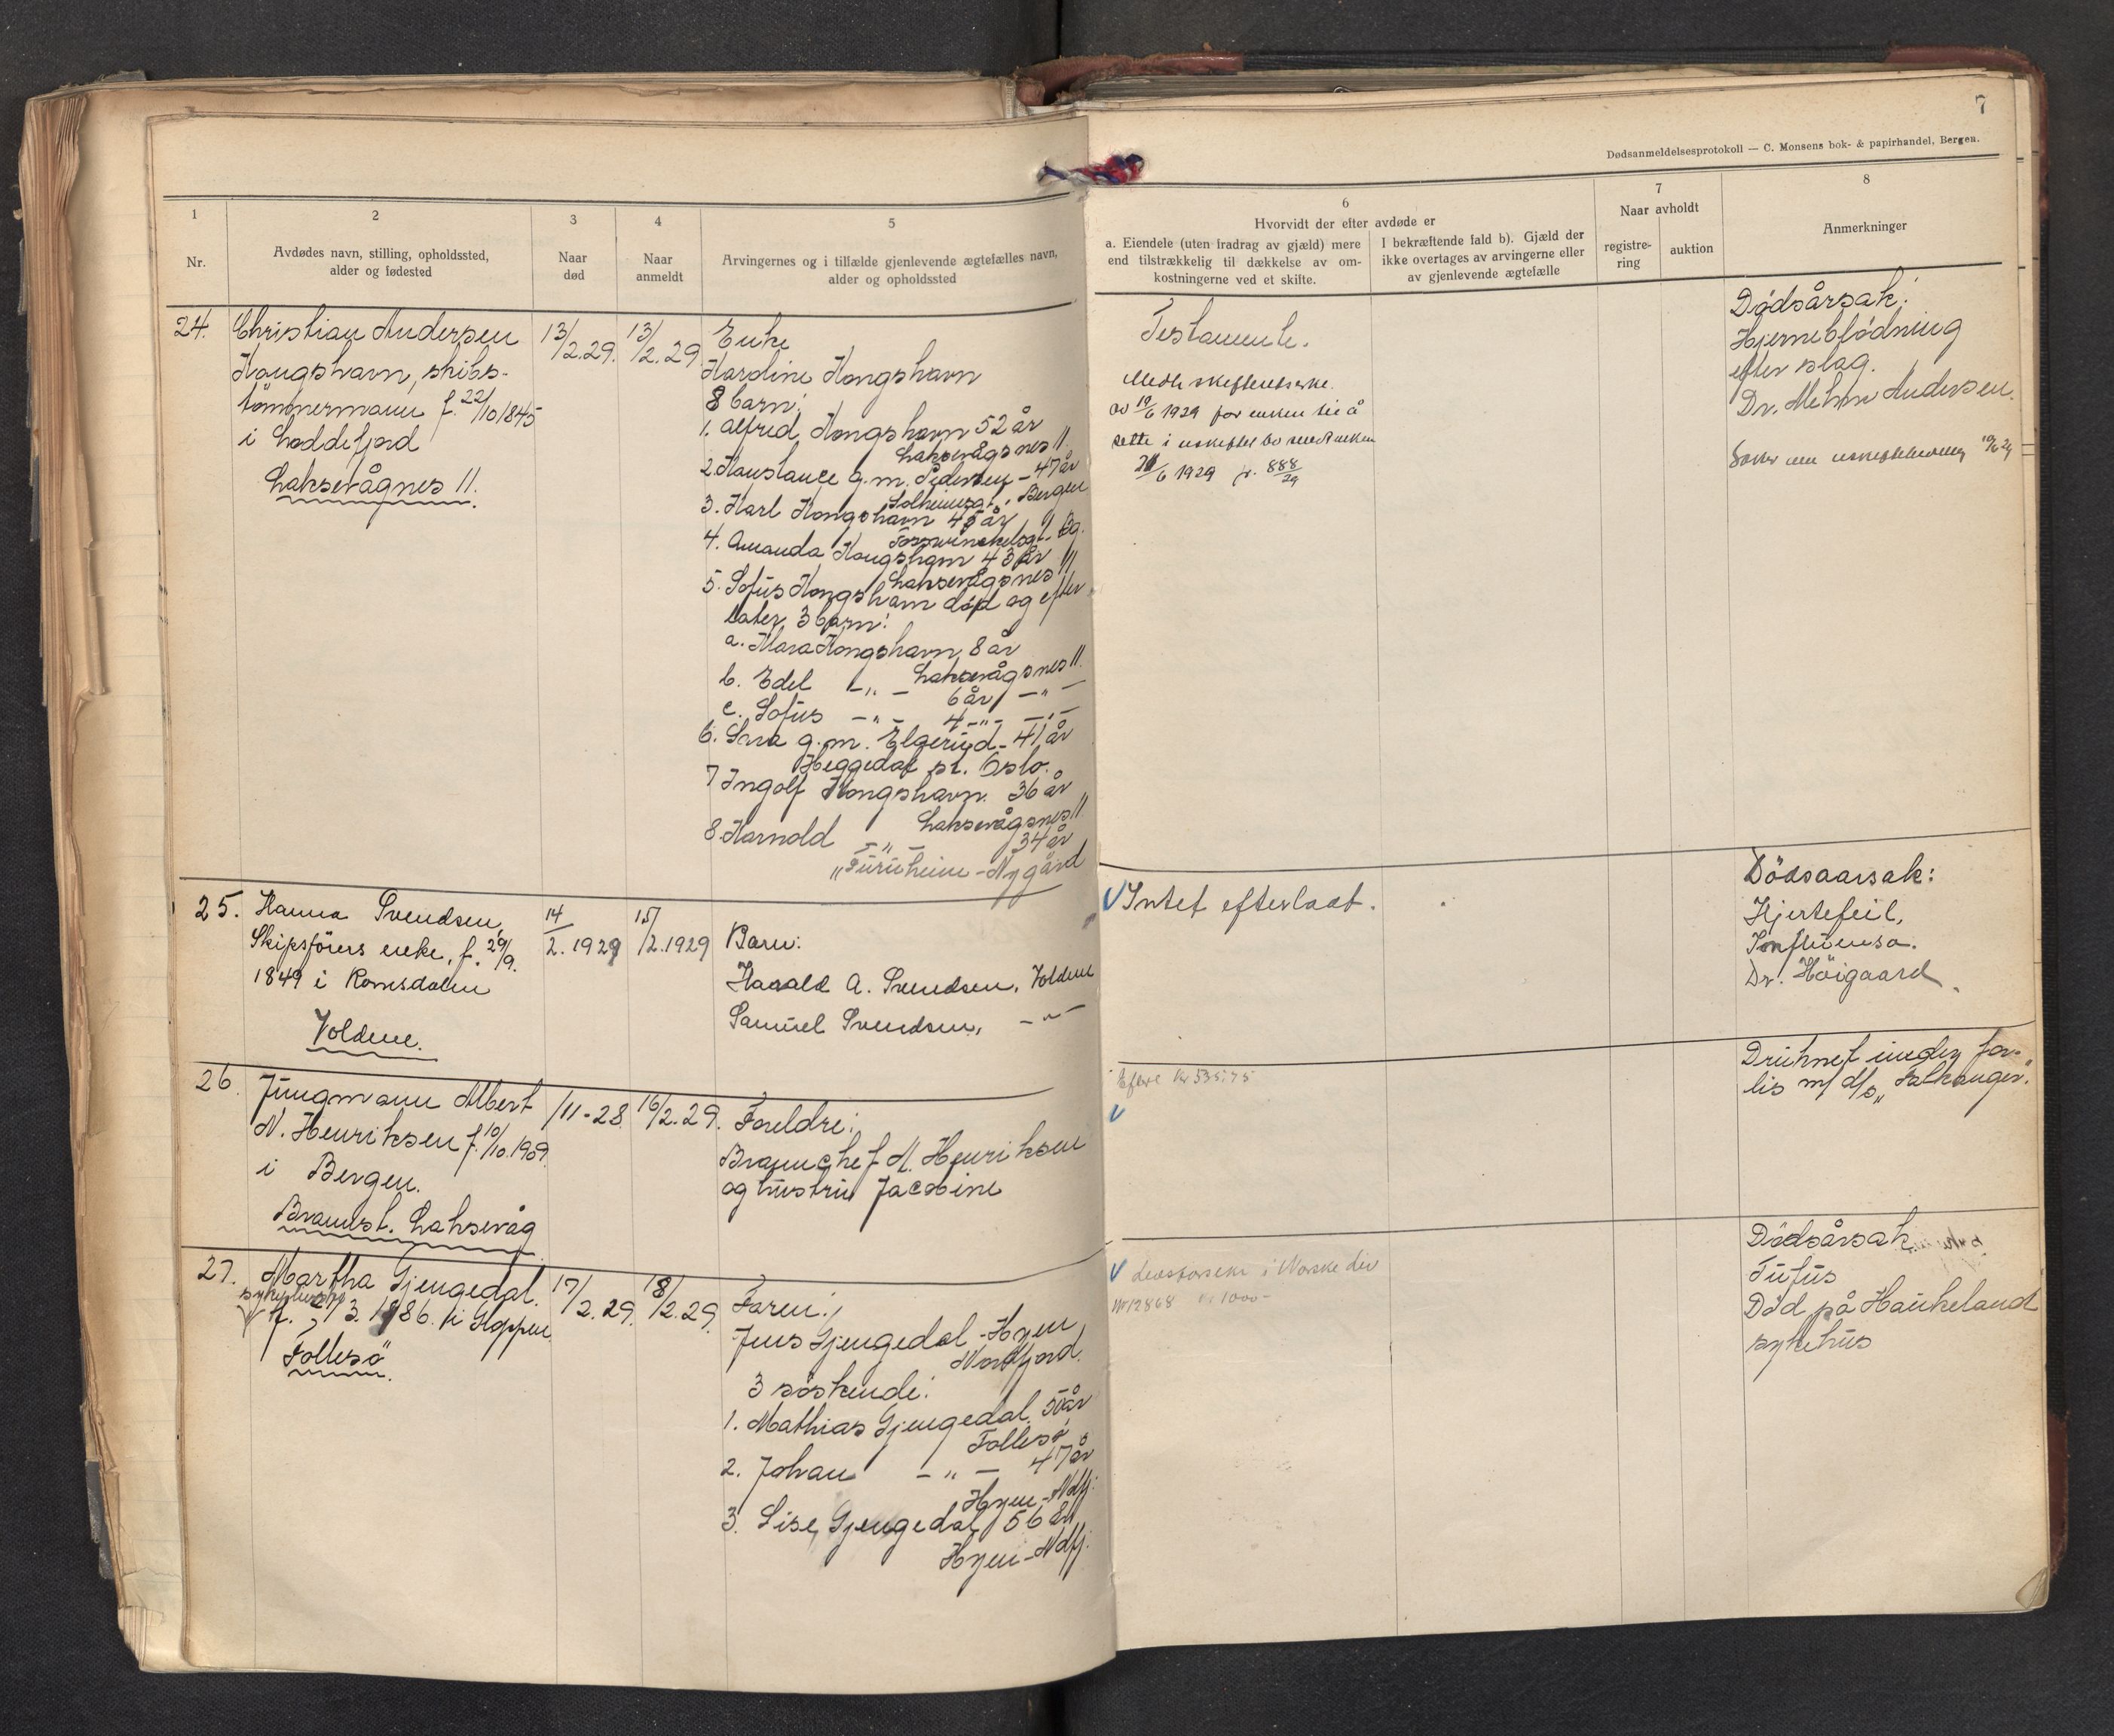 7
Dødsanmeldelsesprotokoll — C. Monsens bok- & papirhandel, Bergen.
1
Nr.
2
Avdødes navn, stilling, opholdssted,
alder og fødested
3
Naar
død
4
Naar
anmeldt
5
Arvingernes og i tilfælde gjenlevende ægtefælles navn,
alder og opholdssted
6
Hvorvidt der efter avdøde er
a. Eiendele (uten fradrag av gjæld) mere
end tilstrækkelig til dækkelse av om-
kostningerne ved et skifte.
I bekræftende fald b). Gjæld der
ikke overtages av arvingerne eller
av gjenlevende ægtefælle
7
Naar avholdt
registre-
ring
auktion
8
Anmerkninger
24.
Christian Andersen
Kongshavn, skibs-
tömmermann f. 22/10 1845
i Loddefjord
Laksevågnes 11.
13/2.29.
13/2.29
Enke
Kardine Kongshavn
8 barn:
1. Alfred Kongshavn 52 år
Laksevågsnes 11.
2. Konstance g.m. Pedersen - 47 år
Solheimsg. , Bergen
3. Karl Kongshavn 45 år
Bg.
4. Amanda Kongshavn 43 år
Laksevågsnes 11
5. Sofus Kongshavn död og efter
later 3 barn:
a. Klara Kongshavn, 8 år
Laksevågsnes 11.
b. Edel -„- 6 år -„-
c. Sofus -„- 4 -„- -„-
6. g.m. Elgerud - 41 år
Heggedal st. Oslo.
7 Ingolf Kongshavn. 36 år
Laksevågsnes 11
8. Harnold -„- 34 år
„Furuheim - Nygård
Testamente.
Medd. skifteattest
av 19/6 1929 for enken til å
sitte i uskiftet bo
21/6 1929 j. 888/29
Dödsårsak:
Hjerneblödning
efter slag.
Dr. Mehn Andersen.
25.
Hanna Svendsen,
Skipsförers enke, f. 29/9.
1849 i Romsdalen
Voldene.
14/2. 1929
15/2. 1929
Barn:
Harald A. Svendsen, Voldene
Samuel Svendsen, -„-
Intet efterlatt.
Dödsaarsak:
Hjertefeil,
Influensa.
Dr. Höigaard.
26.
Jungmann Albert
N. Henriksen f. 10/10.1909.
i Bergen.
Brannst. Laksevåg
/11-28.
16/2.29.
Foreldre:
Brannchef N. Henriksen
og hustru Jacobine
Kr 535.75
Druknet under for-
lis m/ d/s „Salhauger".
27.
Martha Gjengedal.
f. 27/3. 1886. i Gloppen
Follesö.
17/2.29.
18/2.29.
Faren:
Jens Gjengedal - Hyen
Nordfjord.
3 söskende:
1. Mathias Gjengedal. 50 år
Follesö
2. Johan -„- 47 år
Hyen - Ndfj.
3. Lise Gjengedal 56 år
Hyen - Ndfj.
Livsforsikr i Norske Liv
Nr 12868 Kr 1000-
Dödsårsak
Tüfus
Död på Haukeland
sykehus